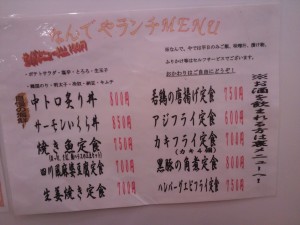 なんでやランチMENU
・ポテトサラダ・塩辛・とろろ・生玉子
おかわりはご自由にどうぞ！
中トロ炙り丼 800円
サーモンいくら丼 850円
焼き魚定食 750円
四川風麻婆豆腐定食 700円
生姜焼き定食 700円
若鶏の唐揚げ定食 750円
アジフライ定食 600円
カキフライ定食 700円
(カキ4個)
黒豚の角煮定食 800円
ハンバーグエビフライ定食 750円
※お酒を飲まれる方は裏メニューへ！